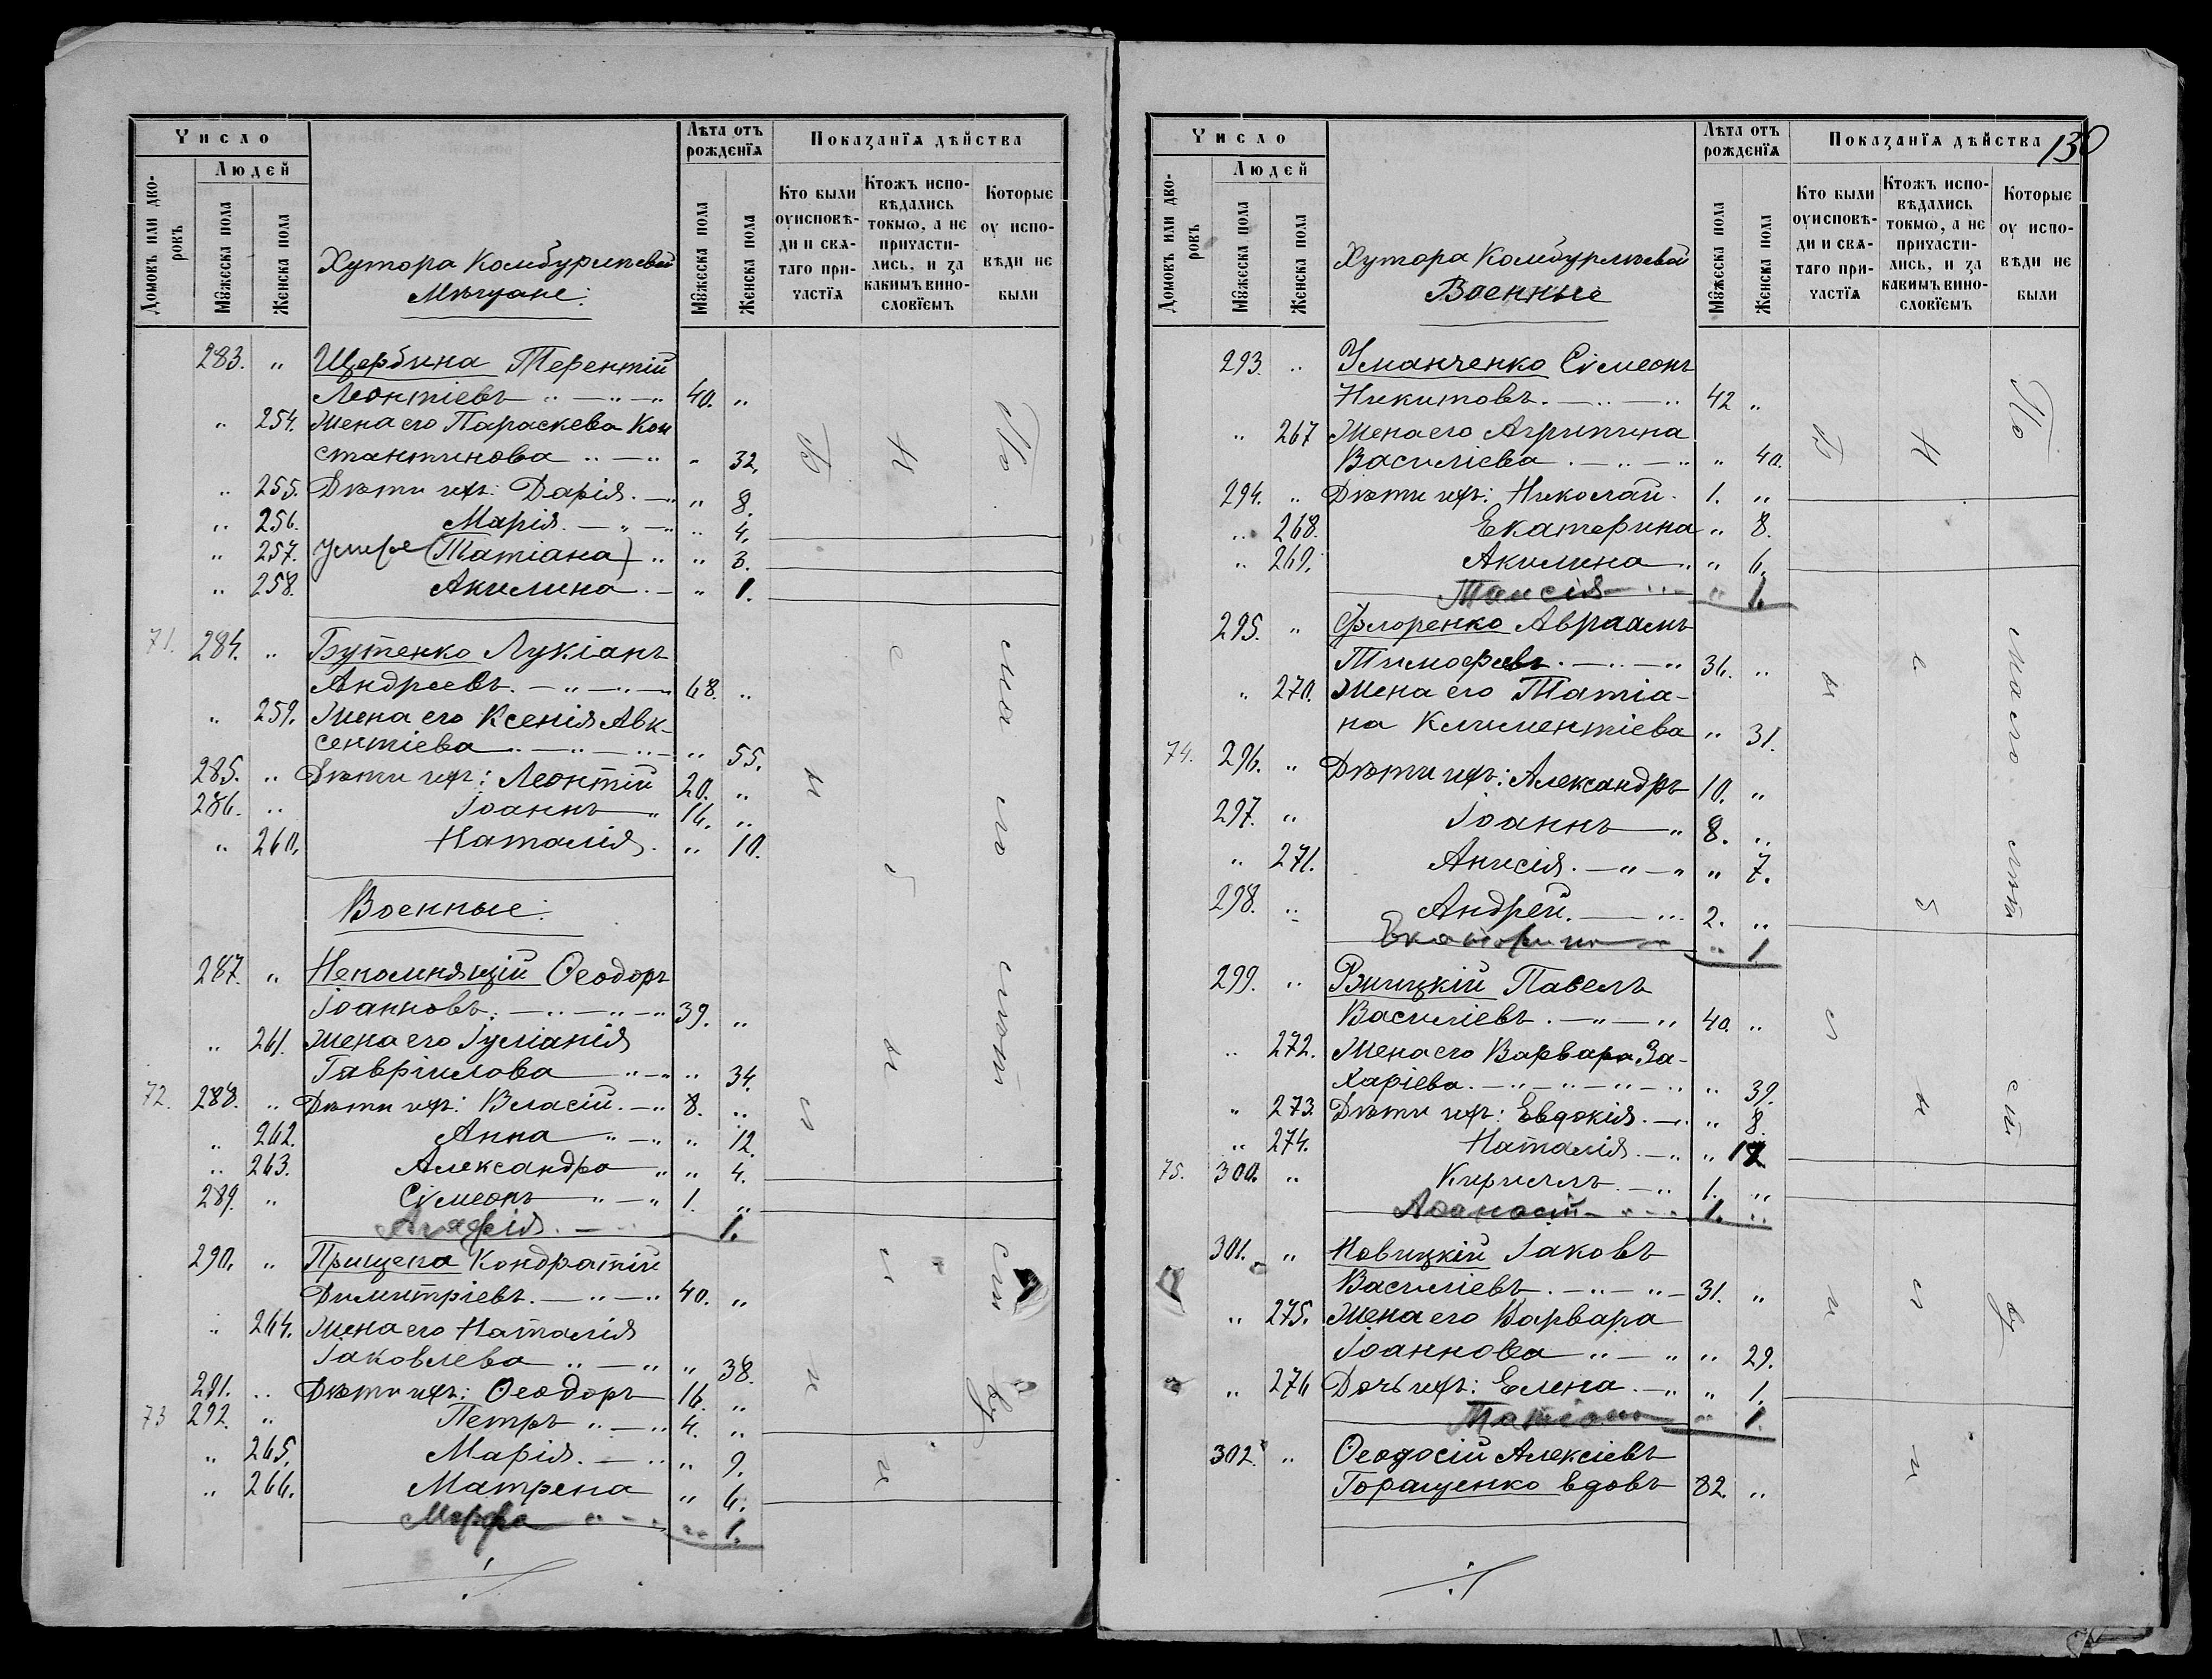 Число
Людей
Домовъ или дво-
ровъ
Мꙋжеска пола
Женска пола
Хутора Комбурлиевой
Мѣщане:
Лѣта отъ
рожденїѧ
Мꙋжеска пола
Женска пола
Показанїѧ дѣйства
Кто были
оуисповѣ-
ди и свѧ-
таго при-
частїѧ
Ктожъ испо-
вѣдались
токмѡ, а не
причасти-
лись, и за
какимъ вино-
словїемъ
Которые
оу испо-
вѣди не
были
283. „ Щербина Терентій
Леонтіевъ 40. „
„ 254. Жена его Параскева Кон
стантинова „ 32.
„ 255. Дѣти ихъ: Дарія. „ 8.
„ 256. Марія. „ 4.
„ 257. умре (Татіана) „ 3.
„ 258. Акилина. „ 1.
71. 284. „ Бутенко Лукіанъ
Андреевъ. 68. „
„ 259. Жена его Ксенія Авк-
сентіева „ 55.
285. „ Дѣти ихъ: Леонтій 20. „
286. „ Іоаннъ 14. „
„ 260. Наталія. „ 10.
Военные:
287. „ Непомнящій Ѳеодоръ
Іоанновъ. 39. „
„ 261. Жена его Іуліанія
Гавріилова „ 34.
72. 288. „ Дѣти ихъ: Власій. 8. „
„ 262. Анна „ 12.
„ 263. Александра „ 4.
289. „ Сѵмеонъ 1. „
Агафія. 1.
290. „ Прищепа Кондратій
Димитріевъ. 40. „
„ 264. Жена его Наталія
Іаковлева „ 38.
291. „ Дѣти ихъ: Ѳеодоръ 16. „
73 292. „ Петръ 4. „
„ 265. Марія. „ 9.
„ 266. Матрена „ 6.
Марфа 1.
130
Число
Людей
Домовъ или дво-
ровъ
Мꙋжеска пола
Женска пола
Хутора Комбурлиевой
Военные
Лѣта отъ
рожденїѧ
Мꙋжеска пола
Женска пола
Показанїѧ дѣйства
Кто были
оуисповѣ-
ди и свѧ-
таго при-
частїѧ
Ктожъ испо-
вѣдались
токмѡ, а не
причасти-
лись, и за
какимъ вино-
словїемъ
Которые
оу испо-
вѣди не
были
293. „ Уманченко Сѵмеонъ
Никитовъ. 42 „
„ 267 Жена его Агрипина
Василіева „ 40.
294. „ Дѣти ихъ: Николай. 1. „
„ 268. Екатерина „ 8.
„ 269. Акилина „ 6.
Таисія „ 1.
295. „ Флоренко Авраамъ
Тимофеевъ. 36. „
„ 270. Жена его Татіа-
на Климентіева „ 31.
74. 296. „ Дѣти ихъ: Александръ 10. „
297. „ Іоаннъ 8. „
„ 271. Анисія. „ 7.
298. „ Андрей. 2. „
Екатерина „ 1
299. „ Ржицкій Павелъ
Василіевъ. 40. „
„ 272. Жена его Варвара За-
харіева. „ 39.
„ 273. Дѣти ихъ: Евдокія. „ 8.
„ 274. Наталія. „ 12
75. 300. „ Кириллъ 1. „
Аѳанасій 1. „
301. „ Новицкій Іаковъ
Василіевъ. 31. „
„ 275. Жена его Варвара
Іоаннова „ 29.
„ 276 Дочь ихъ: Елена. „ 1.
Татіана „ 1.
302. „ Ѳеодосій Алексіевъ
Горащенко вдовъ 32. „